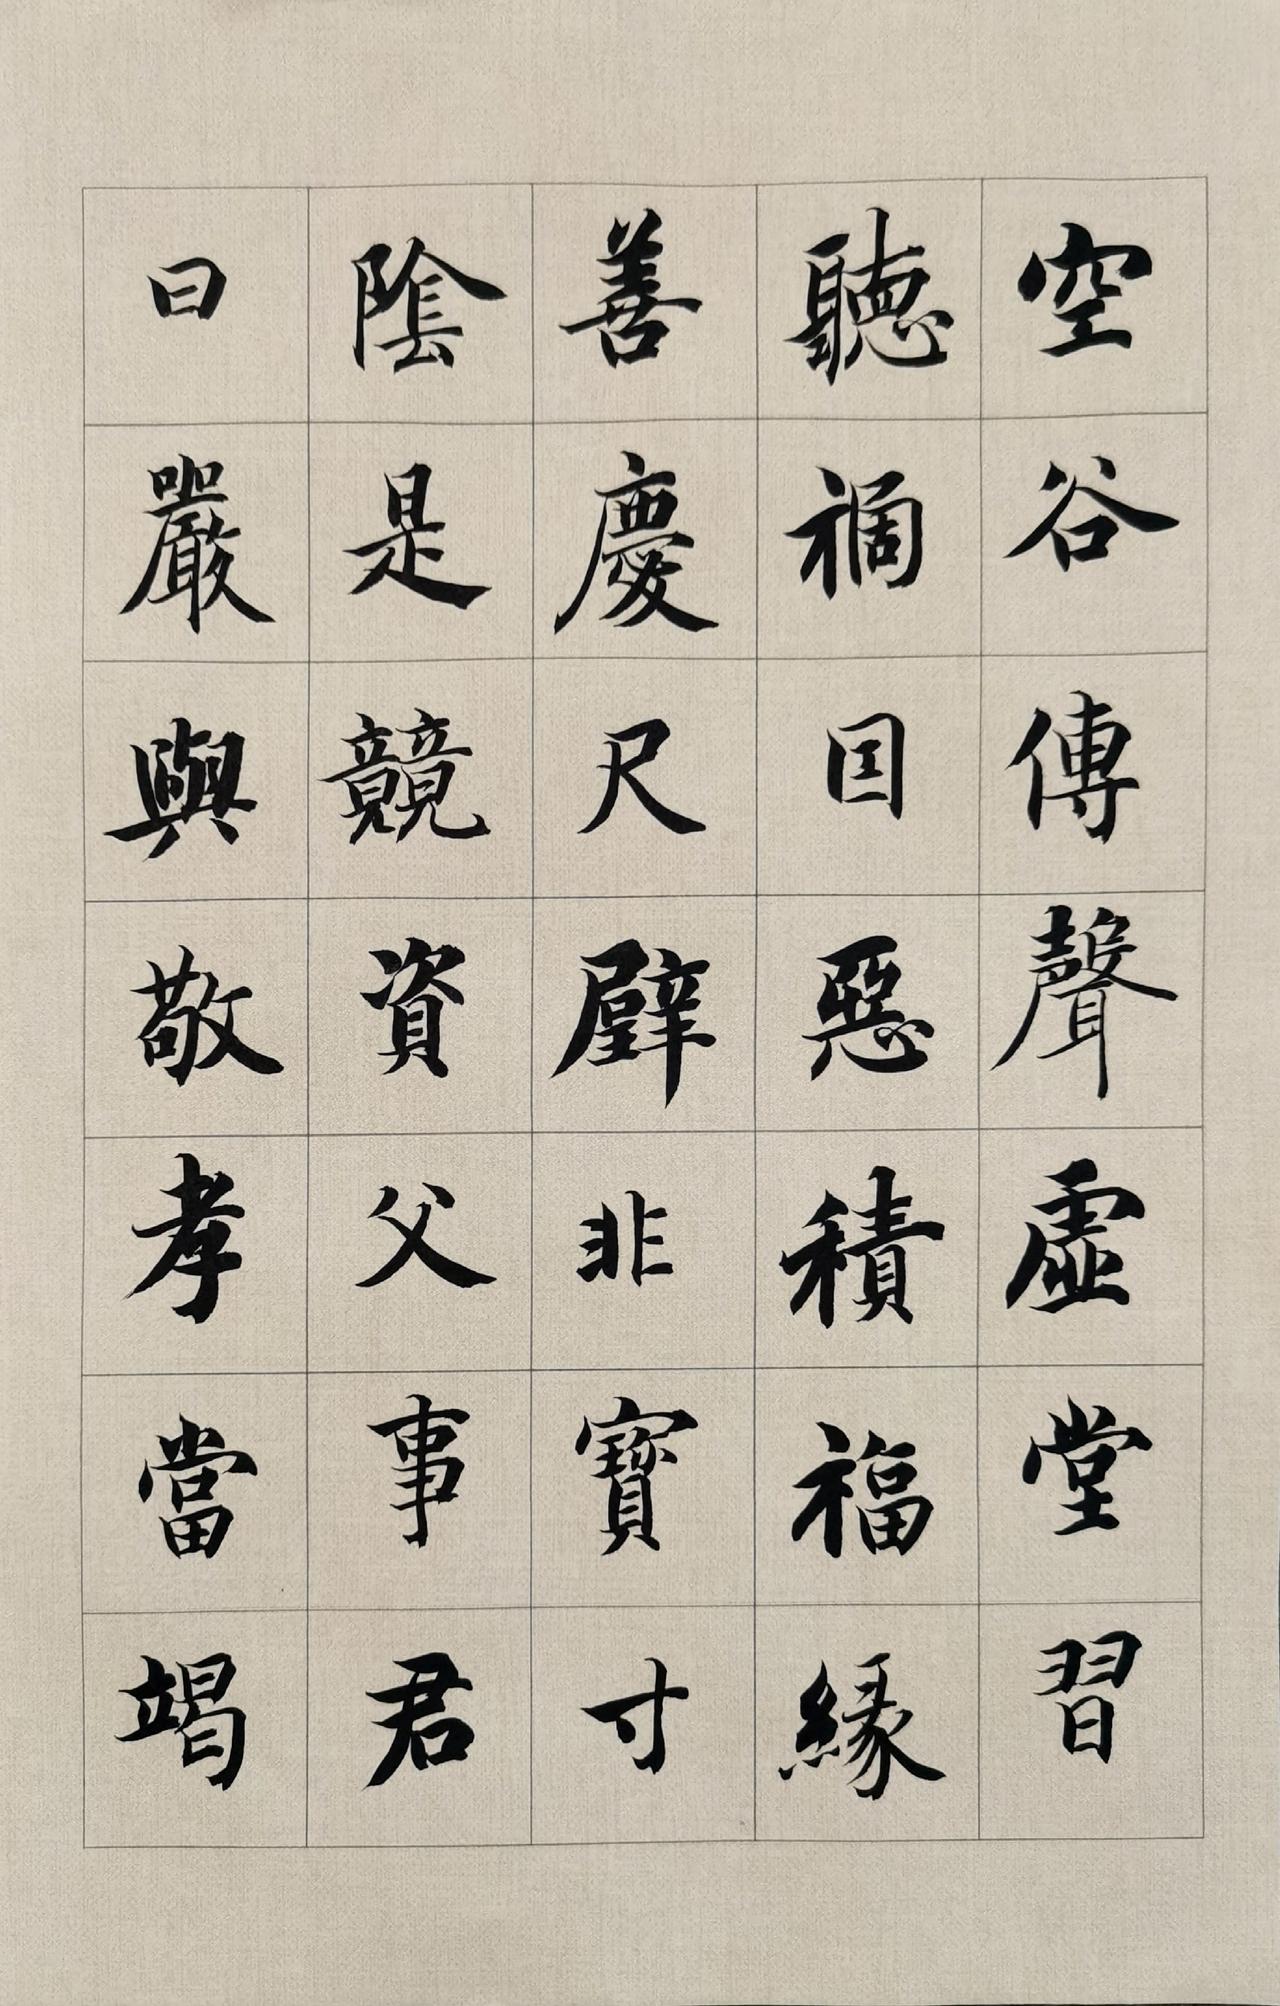 空谷傳聲虛堂習
聽禍因惡積福緣
善慶尺璧非寶寸
陰是競資父事君
曰嚴與敬孝當竭